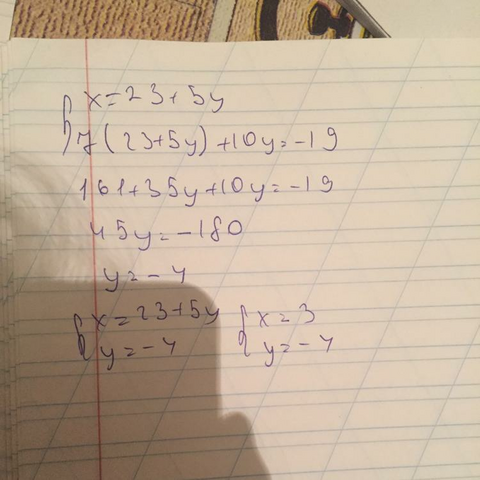 { x=23+5y
7(23+5y)+10y=-19
161+35y+10y=-19
45y=-180
y=-4
{ x=23+5y { x=3
y=-4 y=-4